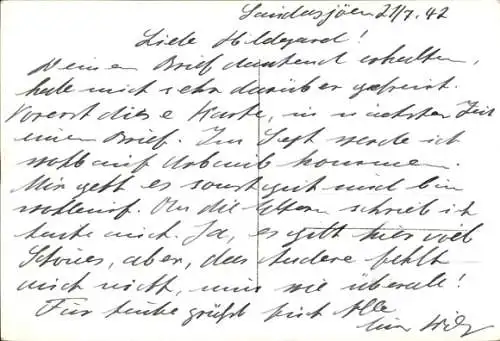 Sandasjöen 21/7. 42
Liebe Hildegard!
Deinen Brief dankend erhalten,
habe mich sehr darüber gefreut.
Vorerst diese Karte, in nächster Zeit
einen Brief. Im Sept werde ich
wohl auf Urlaub kommen.
Mir geht es sonst gut und bin
wohlauf. An die Eltern schrieb ich
heute auch. Ja, es gibt hier viel
Schönes, aber, das Andere fehlt
auch nicht, wie überall!
Für heute grüßt Dich Alle